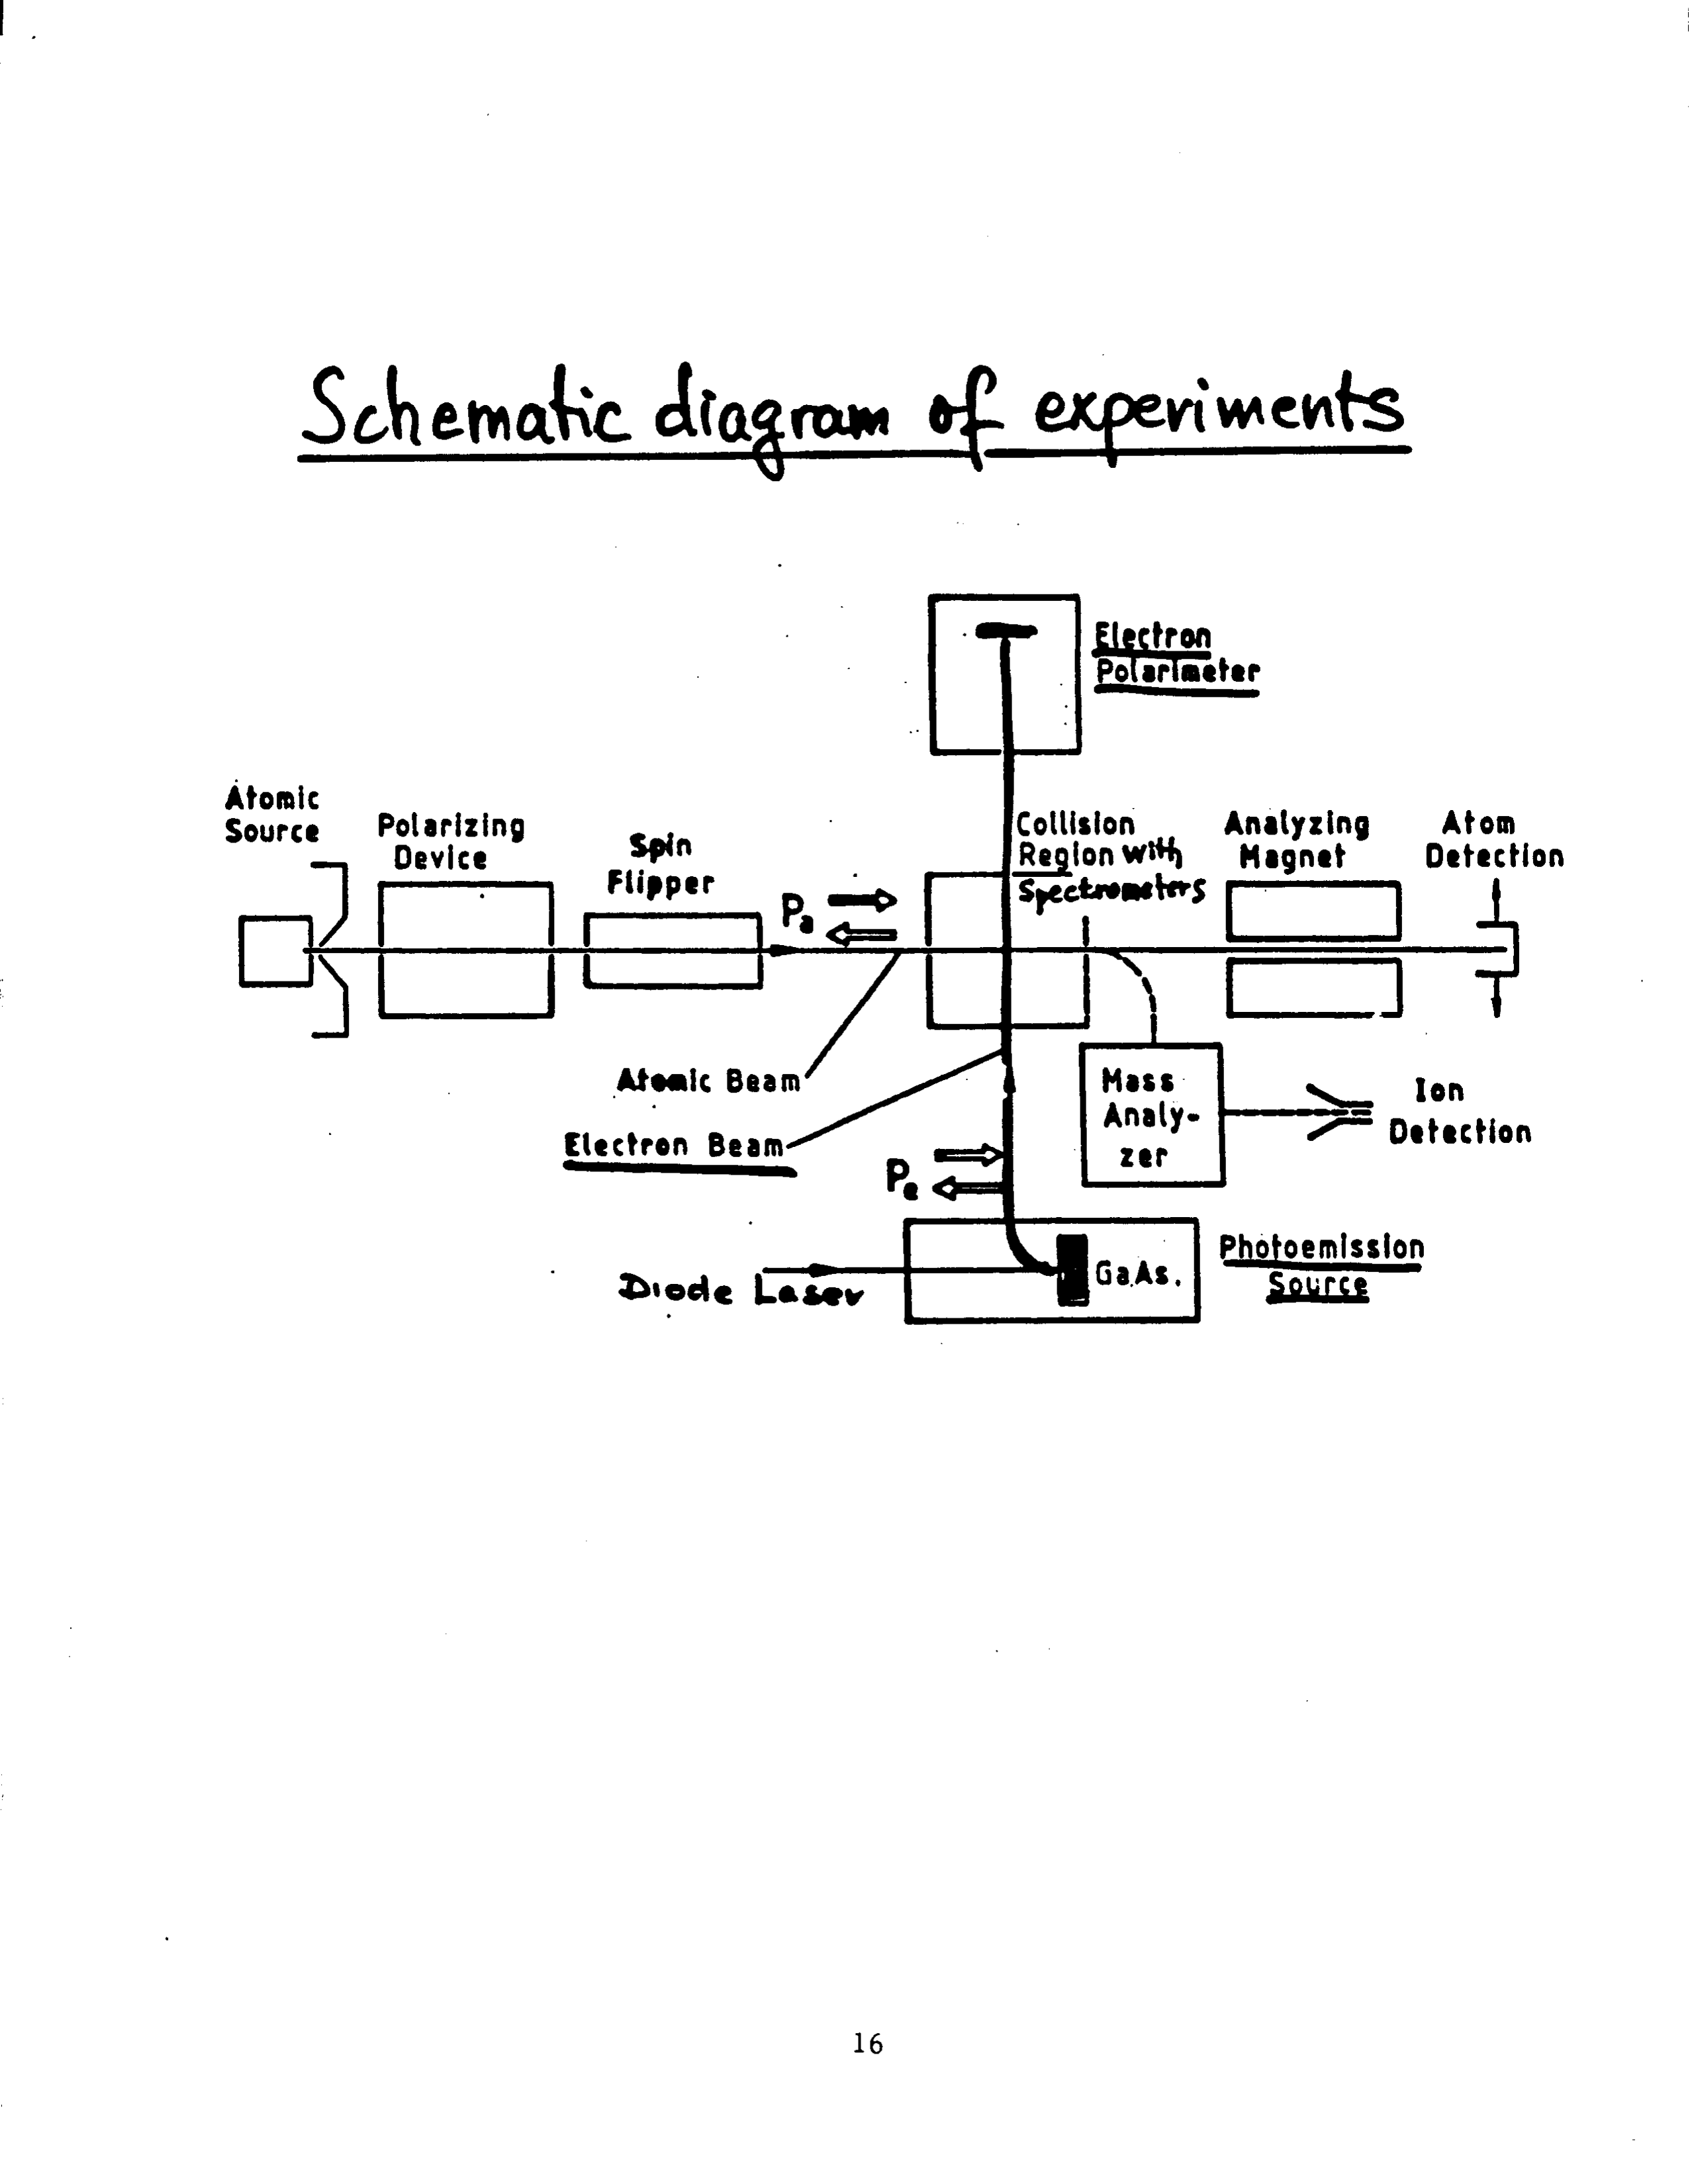 Schematic diagram of experiments
Electron
Polarimeter
Atomic
Source
Polarizing
Device
Spin
Flipper
Pa
Collision
Region with
Spectrometers
Analyzing
Magnet
Atom
Detection
Atomic Beam
Electron Beam
Pe
Mass
Analy-
zer
Ion
Detection
Diode Laser
GaAs.
Photoemission
Source
16